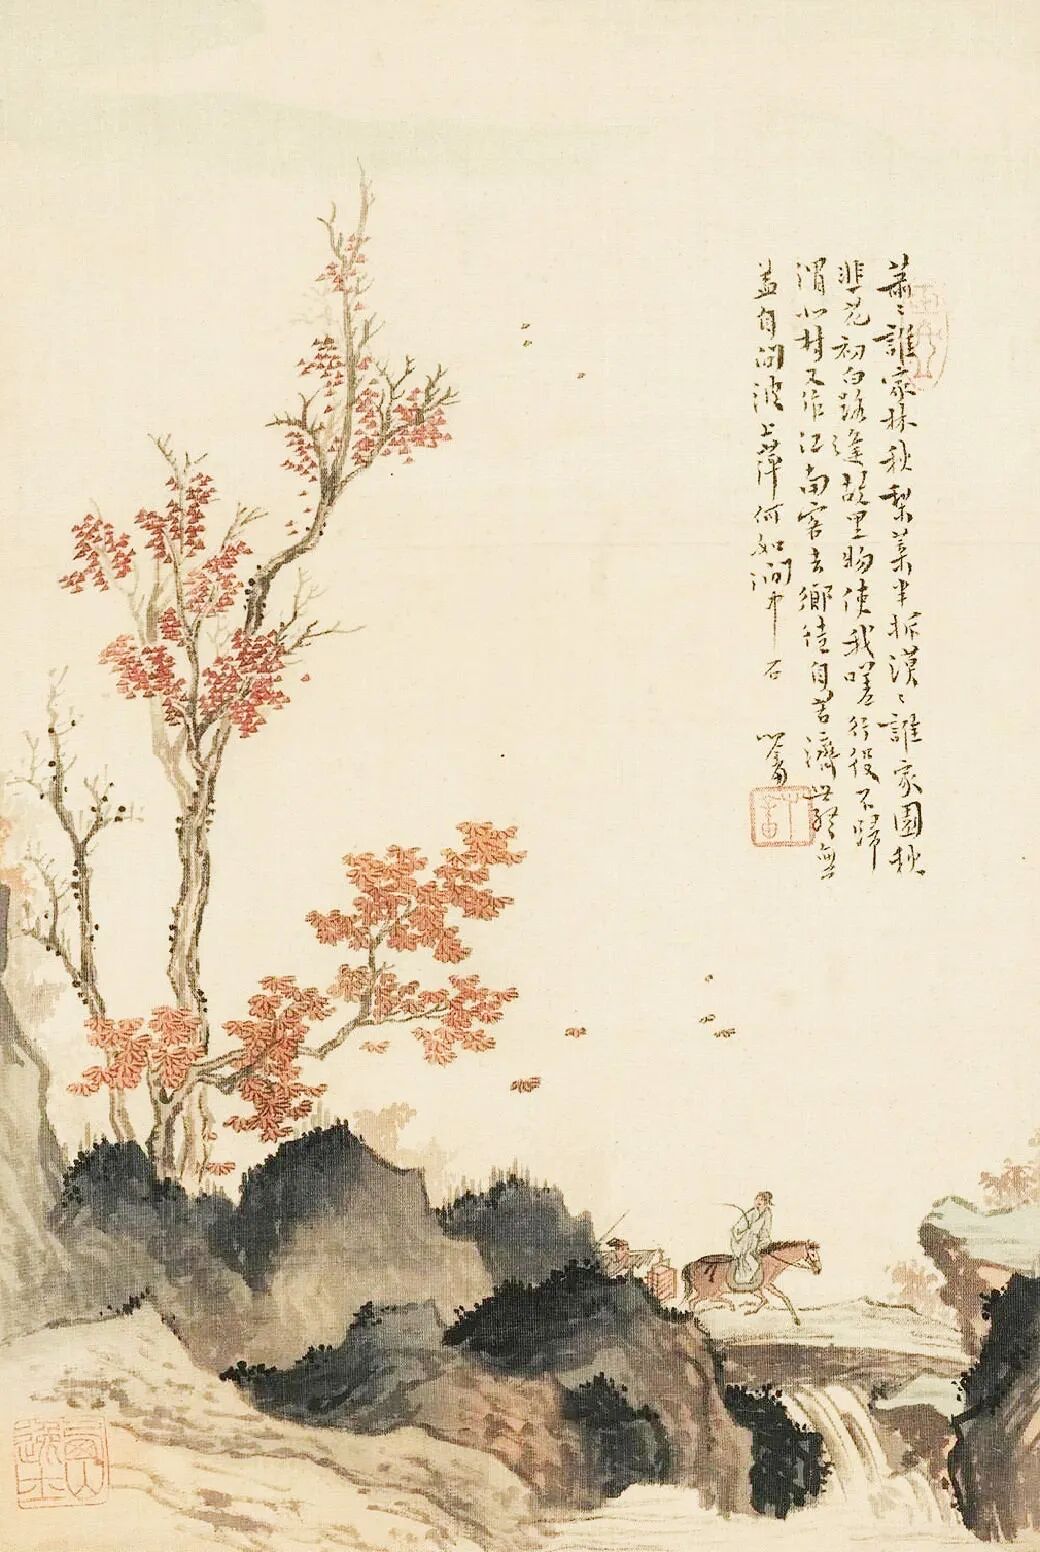 蕭〻誰家林秋梨葉半拆漠〻誰家園秋
韭花初白路逢故里物使我嗟行役不歸
渭北村又作江南客去鄉徒自苦濟世終無
益自問波上萍何如澗中石 心畬
西山逸士